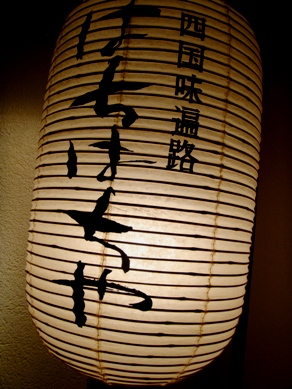 四国味遍路
はちはちや